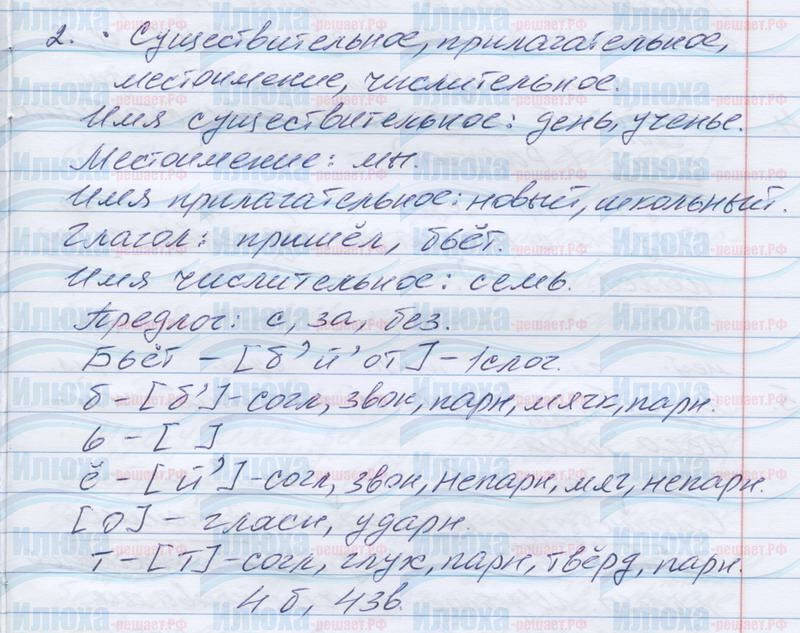 2. · Существительное, прилагательное,
местоимение, числительное.
Имя существительное: день, ученье.
Местоимение: мы.
Имя прилагательное: новый, школьный.
Глагол: пришёл, бьёт.
Имя числительное: семь.
Предлог: с, за, без.
Бьёт – [б'й'от] – 1 слог.
б – [б'] – согл, звон, парн, мягк, парн.
ь – [ ]
ё – [й'] – согл, звон, непарн, мяг, непарн.
[о] – гласн, ударн.
т – [т] – согл, глух, парн, твёрд, парн.
4 б, 4 зв.